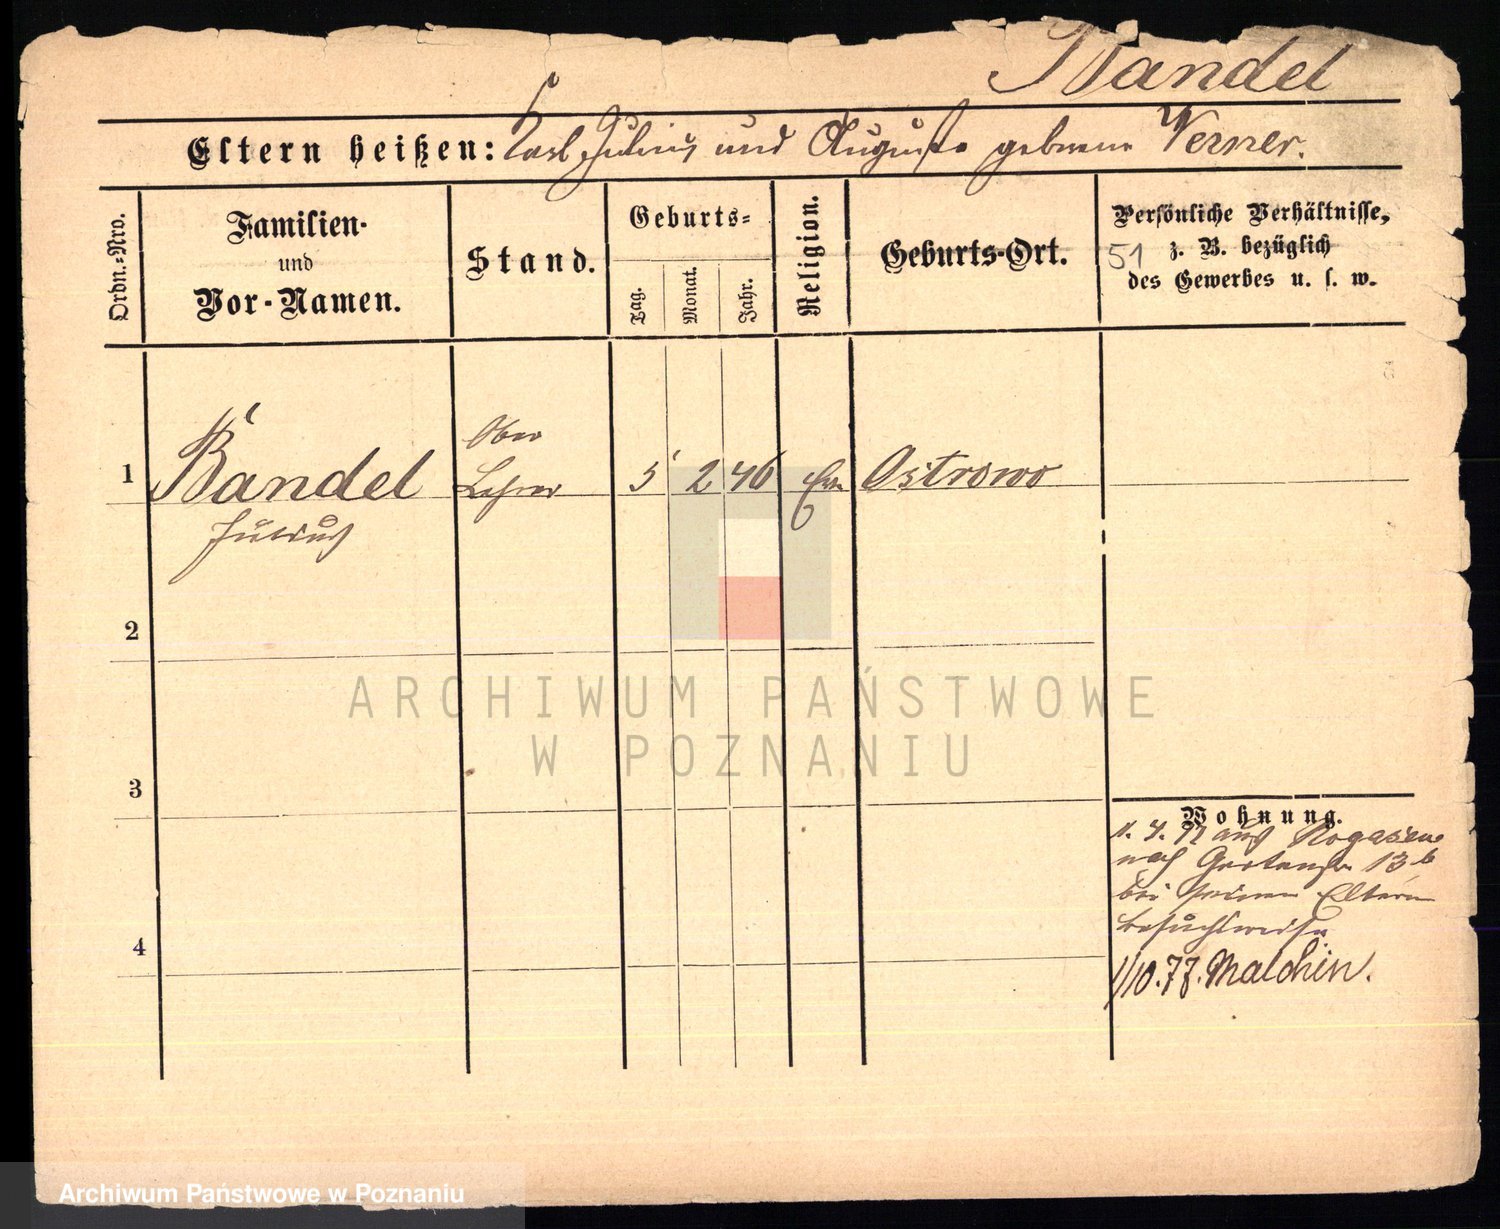 Bandel
Eltern heißen: Karl Julius und Auguste geborene Werner.
Ordn.-Nro.
Familien-
und
Vor-Namen.
Stand.
Geburts-
Tag.
Monat.
Jahr.
Religion.
Geburts-Ort.
Persönliche Verhältnisse,
z. B. bezüglich
des Gewerbes u. s. w.
51
1
Bandel
Julius
Ober
Lehrer
5 2 46
Ev.
Ostrowo
2
3
4
Wohnung.
1. 4. 77 aus Rogasen
nach Gartenstr 13 b
bei seinen Eltern
besuchsweise
1/10.77. Malchin.
ARCHIWUM PAŃSTWOWE
W POZNANIU
Archiwum Państwowe w Poznaniu